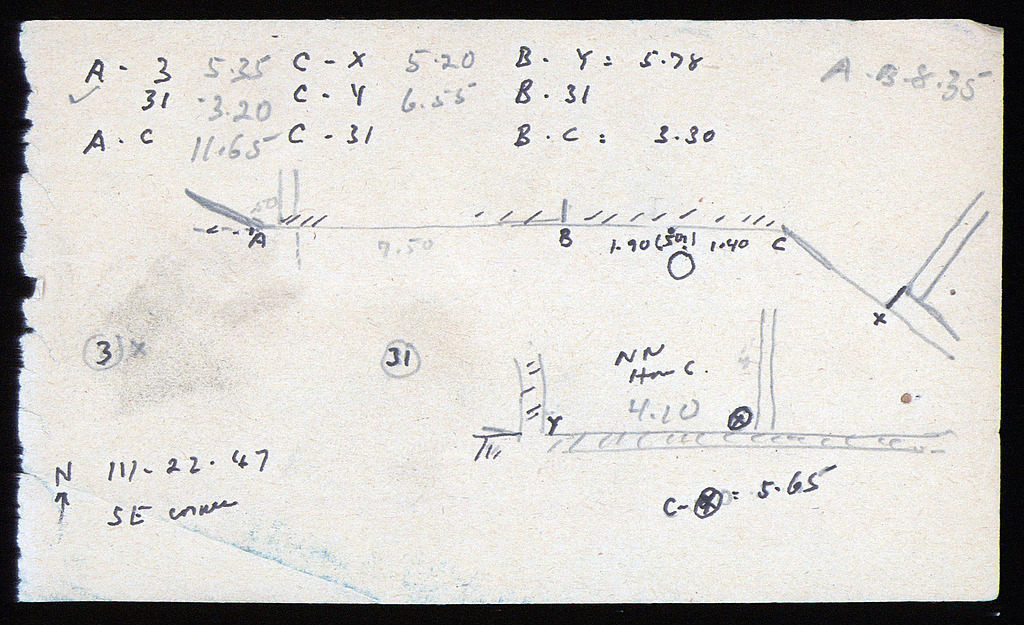 A - 3 5.35 C - X 5.20 B - Y = 5.78
A - B - 8.35
31 - 3.20 C - Y 6.55 B - 31
A - C 11.65 C - 31 B - C = 3.30
A 7.50 B 1.90 1.40 C
X
3 X 31
NN
Y 4.10
N III - 22 - 47
SE corner
C - X = 5.65